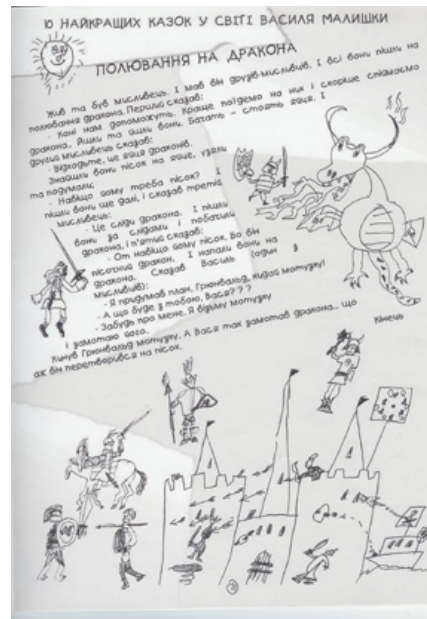 10 НАЙКРАЩИХ КАЗОК У СВІТІ ВАСИЛЯ МАЛИШКИ
ПОЛЮВАННЯ НА ДРАКОНА
Жив та був мисливець. І мав він друзів-мисливців. І всі вони пішли на
полювання дракона. Перший сказав:
- Коні нам допоможуть. Краще поїдемо на них і скоріше спіймаємо
дракона. Йшли та йшли вони. Бачать – стоять яйця. І
другий мисливець сказав:
- Відходьте, це яйця драконів.
Знайшли вони пісок на яйце, узяли
та подумали:
- Навіщо йому треба пісок? І
пішли вони ще далі, і сказав третій
мисливець:
- Це сліди дракона. І пішли
вони за слідами і побачили
дракона, і п'ятий сказав:
- От навіщо йому пісок. Бо він
пісочний дракон. І напали вони на
дракона. Сказав Василь (один з
мисливців):
- Я придумав план, Грюнвальд, кидай мотузку!
- А що буде з тобою, Вася???
- Забудь про мене. Я візьму мотузку
і замотаю його.
Кинув Грюнвальд мотузку. А Вася так замотав дракона... що
аж він перетворівся на пісок.
Кінець